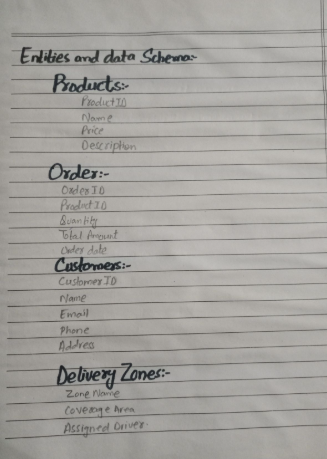 Entities and data Schema:-
Products:-
ProductID
Name
Price
Description
Order:-
OrderID
ProductID
Quantity
Total Amount
Order date
Customers:-
CustomerID
Name
Email
Phone
Address
Delivery Zones:-
Zone Name
Coverage Area
Assigned Driver.